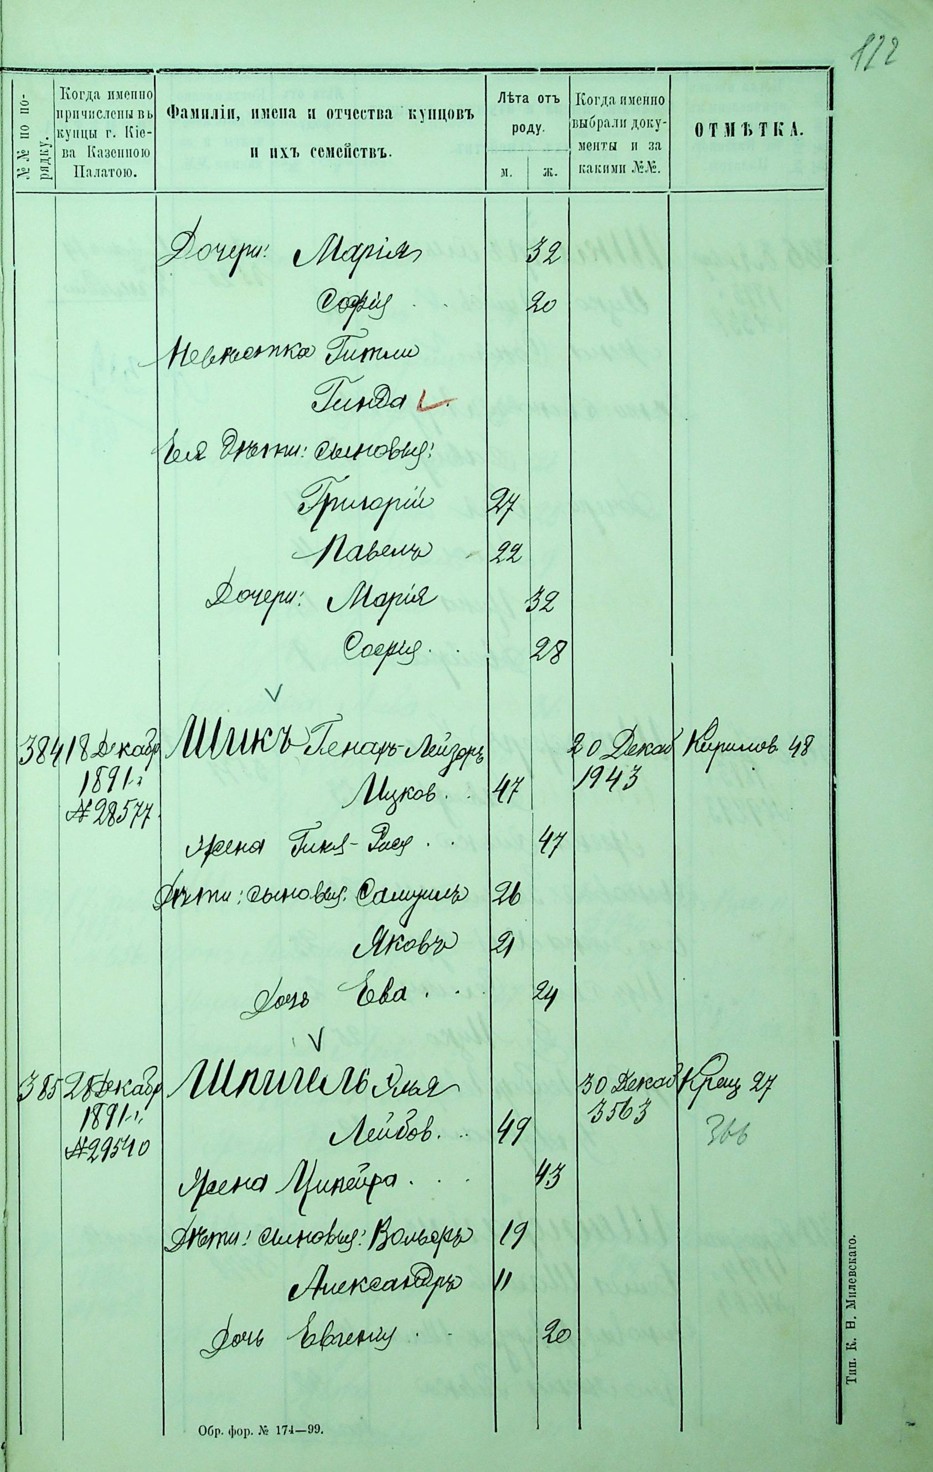 122
№№ по по-
рядку.
Когда именно
причислены въ
купцы г. Кіе-
ва Казенною
Палатою.
Фамиліи, имена и отчества купцовъ
и ихъ семействъ.
Лѣта отъ
роду.
м. ж.
Когда именно
выбрали доку-
менты и за
какими №№.
ОТМѢТКА.
Дочери: Марія 32
Софія 20
Невѣстка Гитли
Гинда
Ея дѣти: сыновья:
Григорій 27
Павелъ 22
Дочери: Марія 32
Софія 28
384 18 Декабр Шикъ Генахъ-Лейзоръ 20 Декаб Кирилов 48
1891 г. Ицков 47 1943
№ 28577
Жена Гитля-Рася 47
Дѣти: сыновья: Самуилъ 26
Яковъ 21
Дочь Ева 24
385 28 Декабр Шпигель Илья 30 Декаб Крещ 27
1891 г. Лейбов 49 3563 366
№ 29540
Жена Ципейра 43
Дѣти: сыновья: Вольфъ 19
Александръ 11
Дочь Евгенія 20
Обр. фор. № 174—99.
Тип. К. Н. Милевскаго.